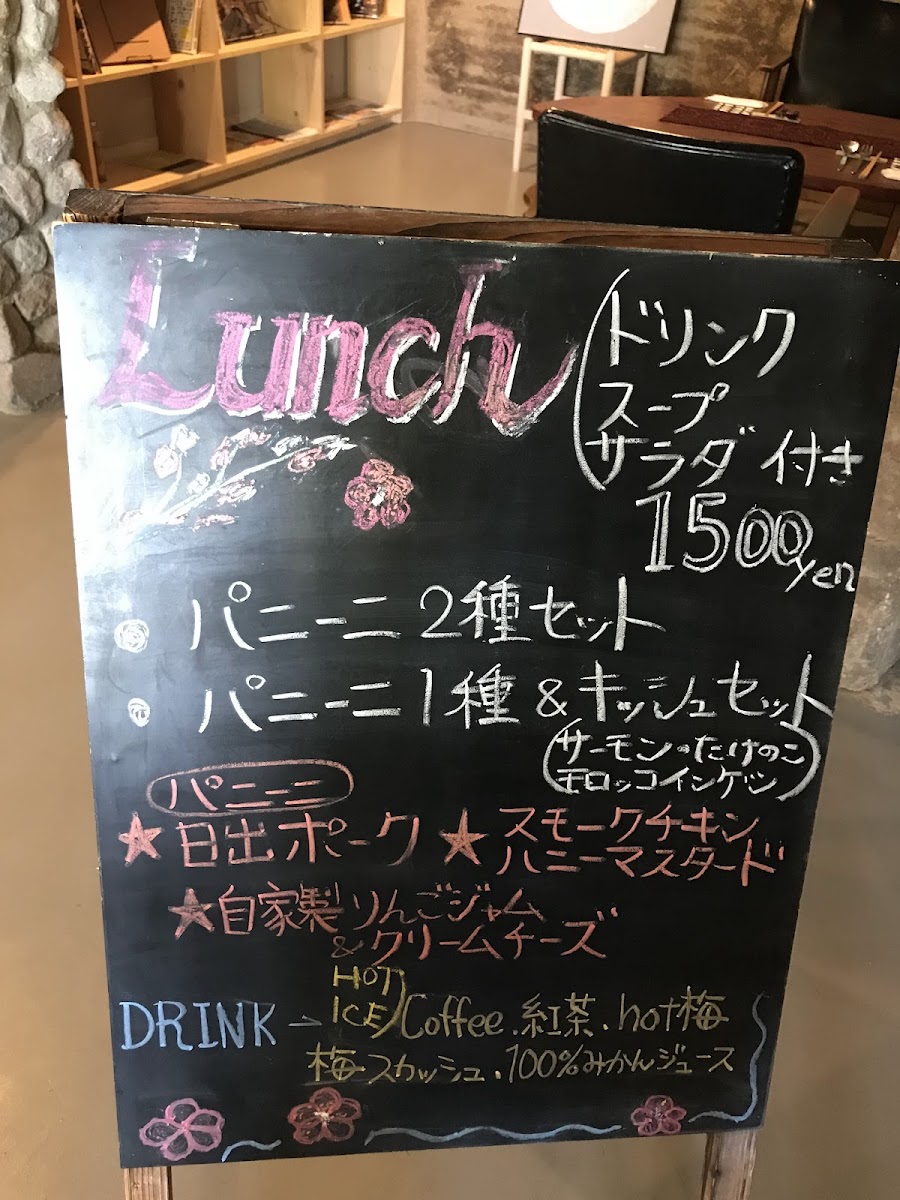 Lunch
ドリンク
スープ
サラダ 付き
1500yen
パニーニ 2種セット
パニーニ 1種 & キッシュセット
(サーモン・たけのこ
モロッコインゲン)
パニーニ
★日出ポーク ★スモークチキン
ハニーマスタード
★自家製りんごジャム
&クリームチーズ
DRINK - HOT
ICE) Coffee.紅茶.hot梅
梅スカッシュ.100%みかんジュース